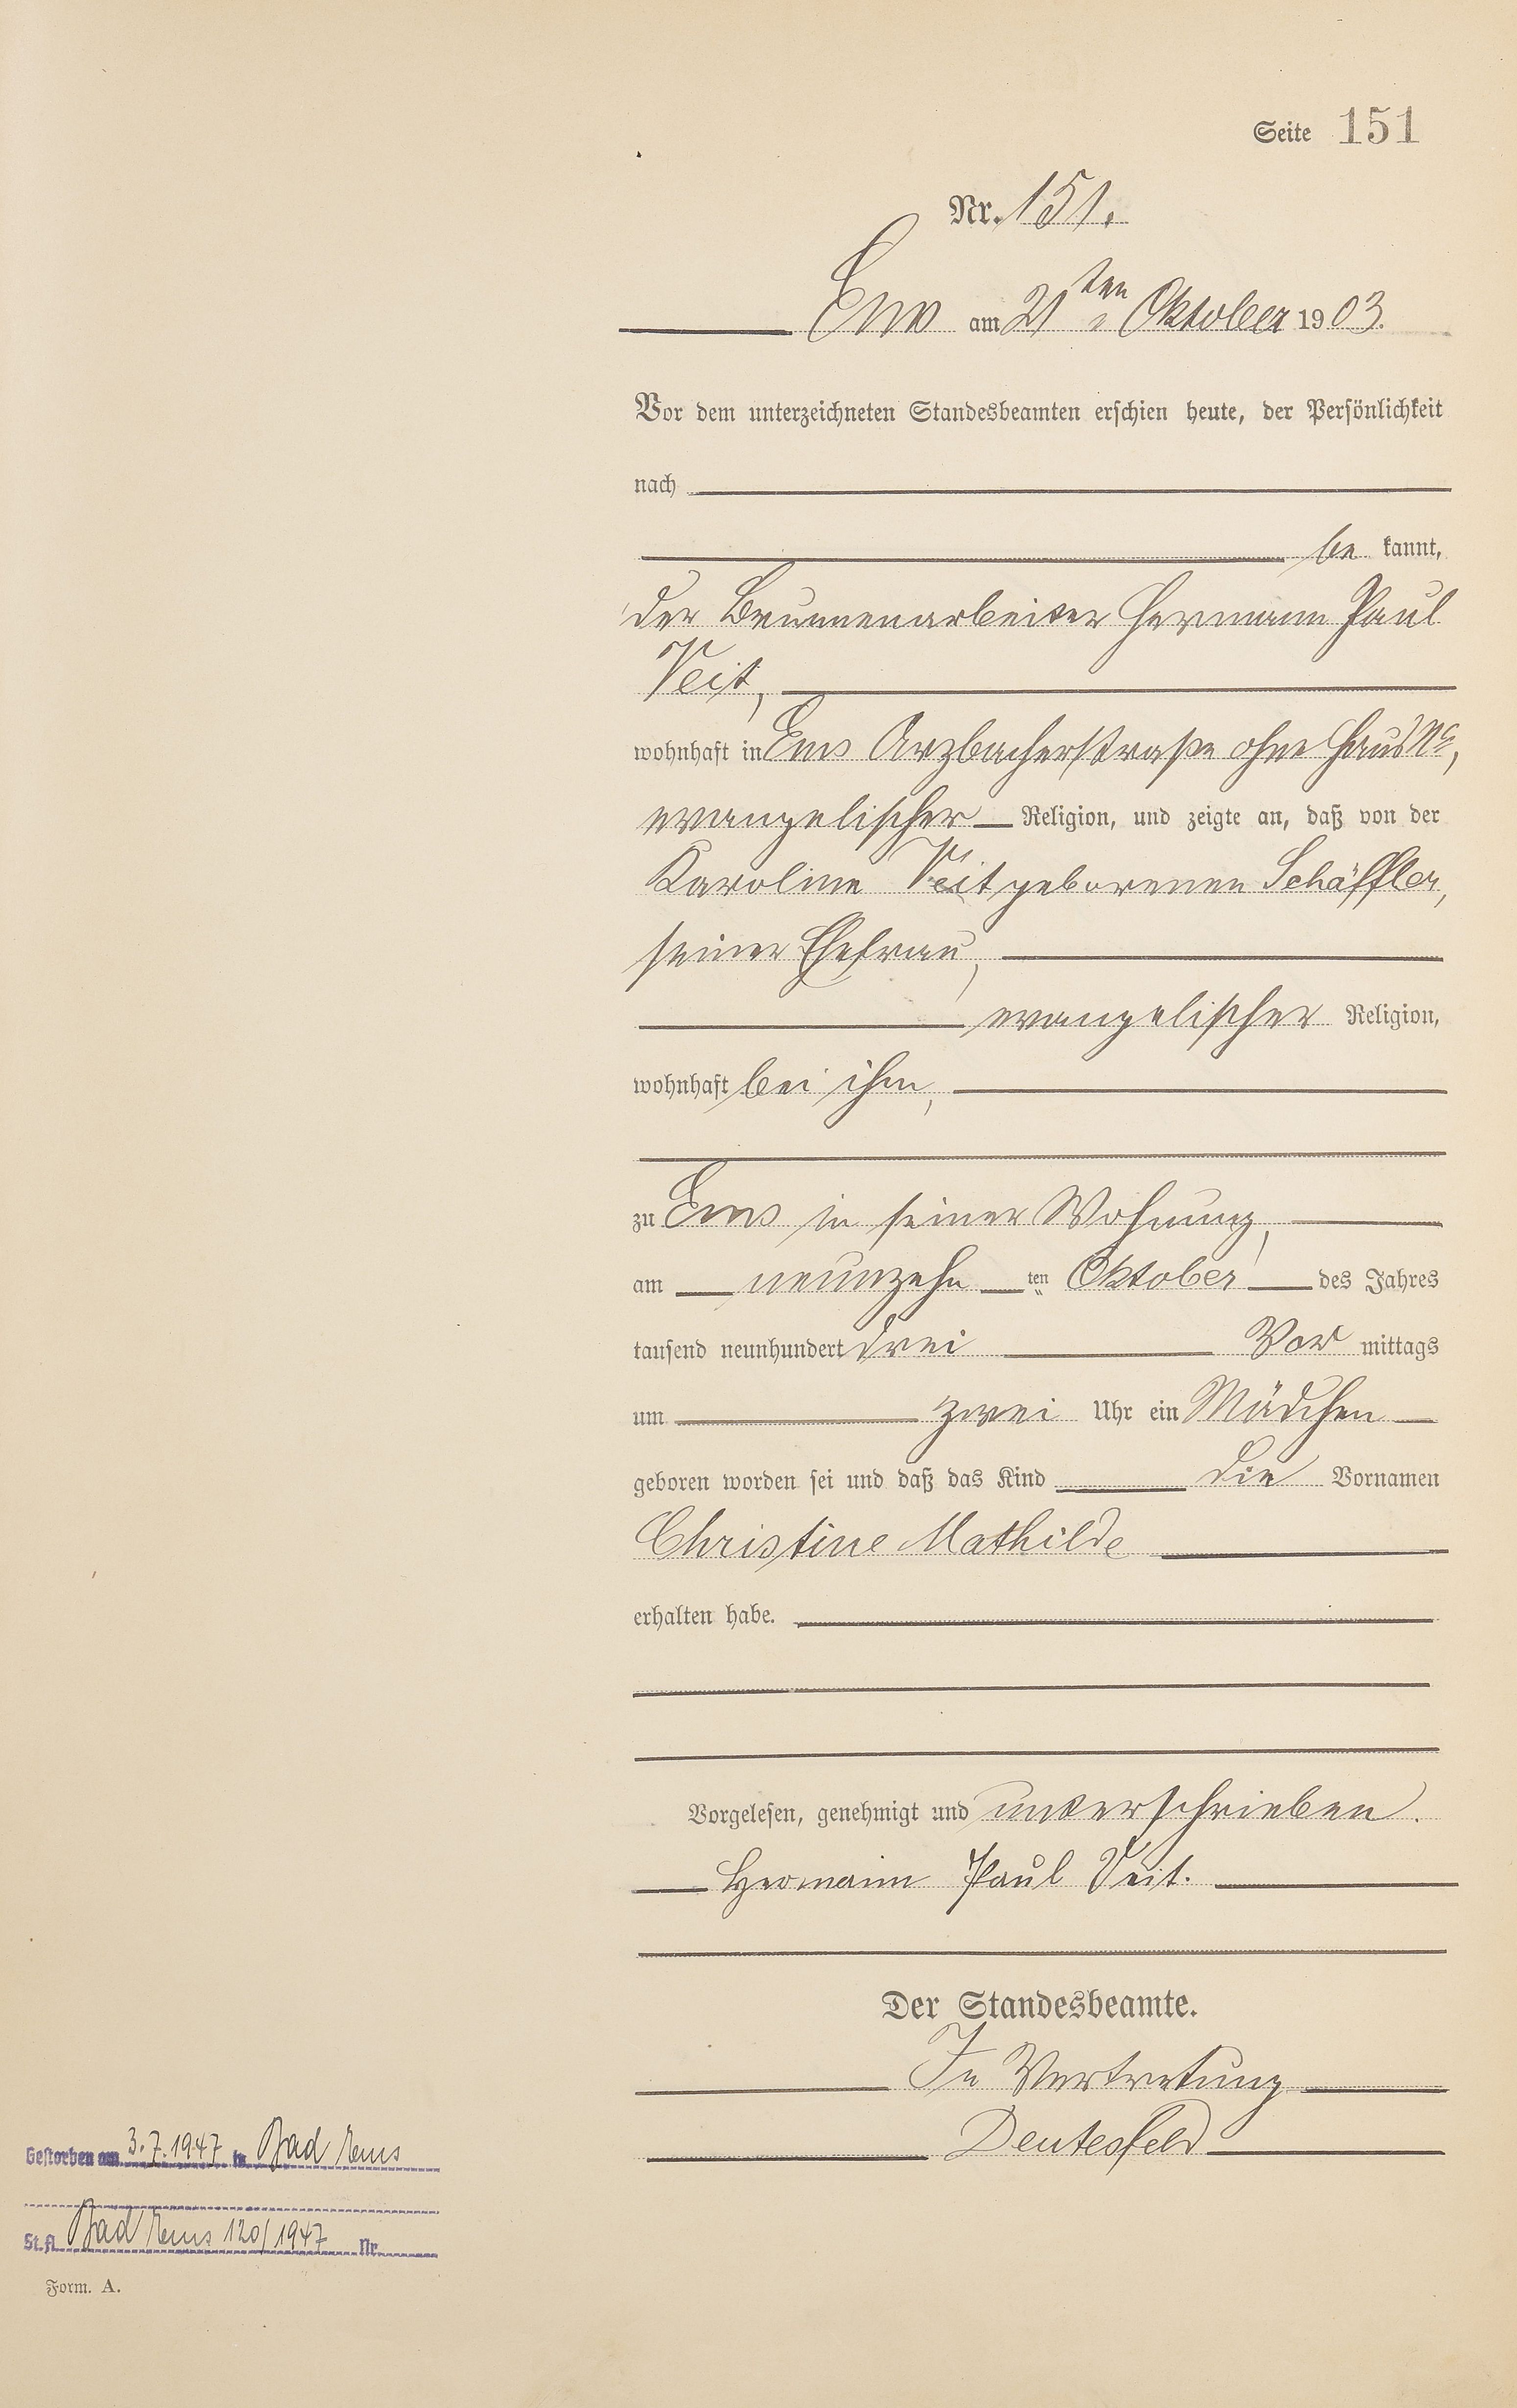 Seite 151
Nr. 151.
Ems am 21ten Oktober 1903.
Vor dem unterzeichneten Standesbeamten erschien heute, der Persönlichkeit
nach
be kannt,
der Brunnenarbeiter Hermann Paul
Veit,
wohnhaft in Ems Arzbacherstraße ohne Haus No,
evangelischer Religion, und zeigte an, daß von der
Karoline Veit geborenen Schäffler,
seiner Ehefrau,
evangelischer Religion,
wohnhaft bei ihm,
zu Ems in seiner Wohnung,
am neunzehn ten Oktober des Jahres
tausend neunhundert drei Vor mittags
um zwei Uhr ein Mädchen
geboren worden sei und daß das Kind die Vornamen
Christine Mathilde
erhalten habe.
Vorgelesen, genehmigt und unterschrieben.
Hermann Paul Veit.
Der Standesbeamte.
In Vertretung
Deutesfeld
Gestorben am 3.7.1947 in Bad Ems
St.A. Bad Ems 120/1947 Nr.
Form. A.